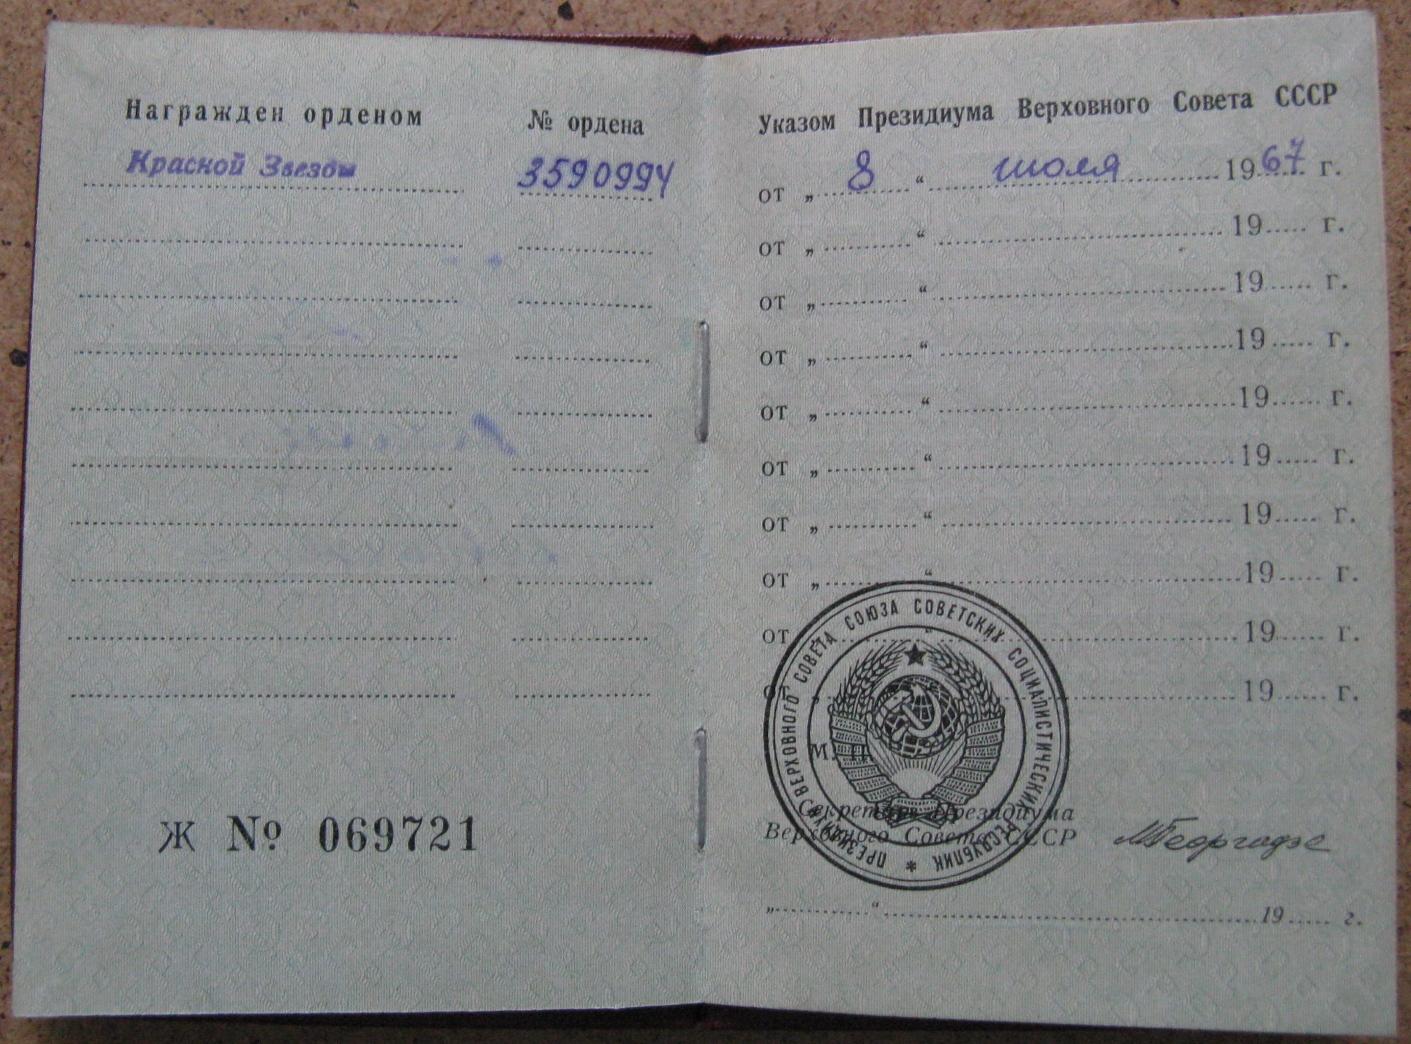 Награжден орденом № ордена
Красной Звезды 3590994
Ж № 069721
Указом Президиума Верховного Совета СССР
от „ 8 “ июля 1967 г.
от „ “ 19 г.
от „ “ 19 г.
от „ “ 19 г.
от „ “ 19 г.
от „ “ 19 г.
от „ “ 19 г.
от „ “ 19 г.
от „ “ 19 г.
от „ “ 19 г.
М. П.
ПРЕЗИДИУМ ВЕРХОВНОГО СОВЕТА СОЮЗА СОВЕТСКИХ СОЦИАЛИСТИЧЕСКИХ РЕСПУБЛИК *
Секретарь Президиума
Верховного Совета СССР МГеоргадзе
„ “ 19 г.